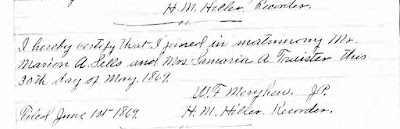 H. M. Hiller, Recorder.
I hereby certify that I joined in matrimony Mr.
Marion A. Sells and Mrs. Samaria A Traister this
30th day of May, 1869.
W. F. Meryhew J.P.
Filed June 1st 1869. H. M. Hiller, Recorder.